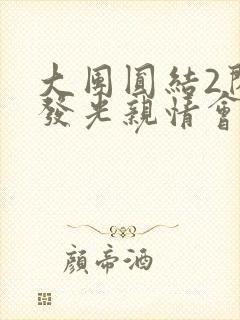 大團圓結2
發光親情會
顏帝酒